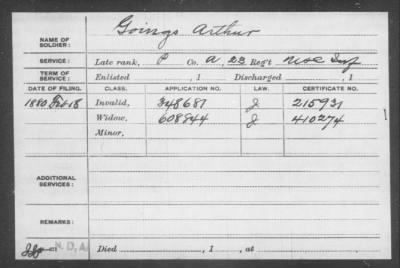 NAME OF SOLDIER: Goings Arthur
SERVICE: Late rank, P Co. A, 23 Reg't Inf
TERM OF SERVICE: Enlisted , 1 Discharged , 1
DATE OF FILING. CLASS. APPLICATION NO. LAW. CERTIFICATE NO.
1880 Feb 18 Invalid, 348681 J 215931
Widow, 608844 J 410274
Minor,
ADDITIONAL SERVICES:
REMARKS:
N.D.A. Died , 1 , at